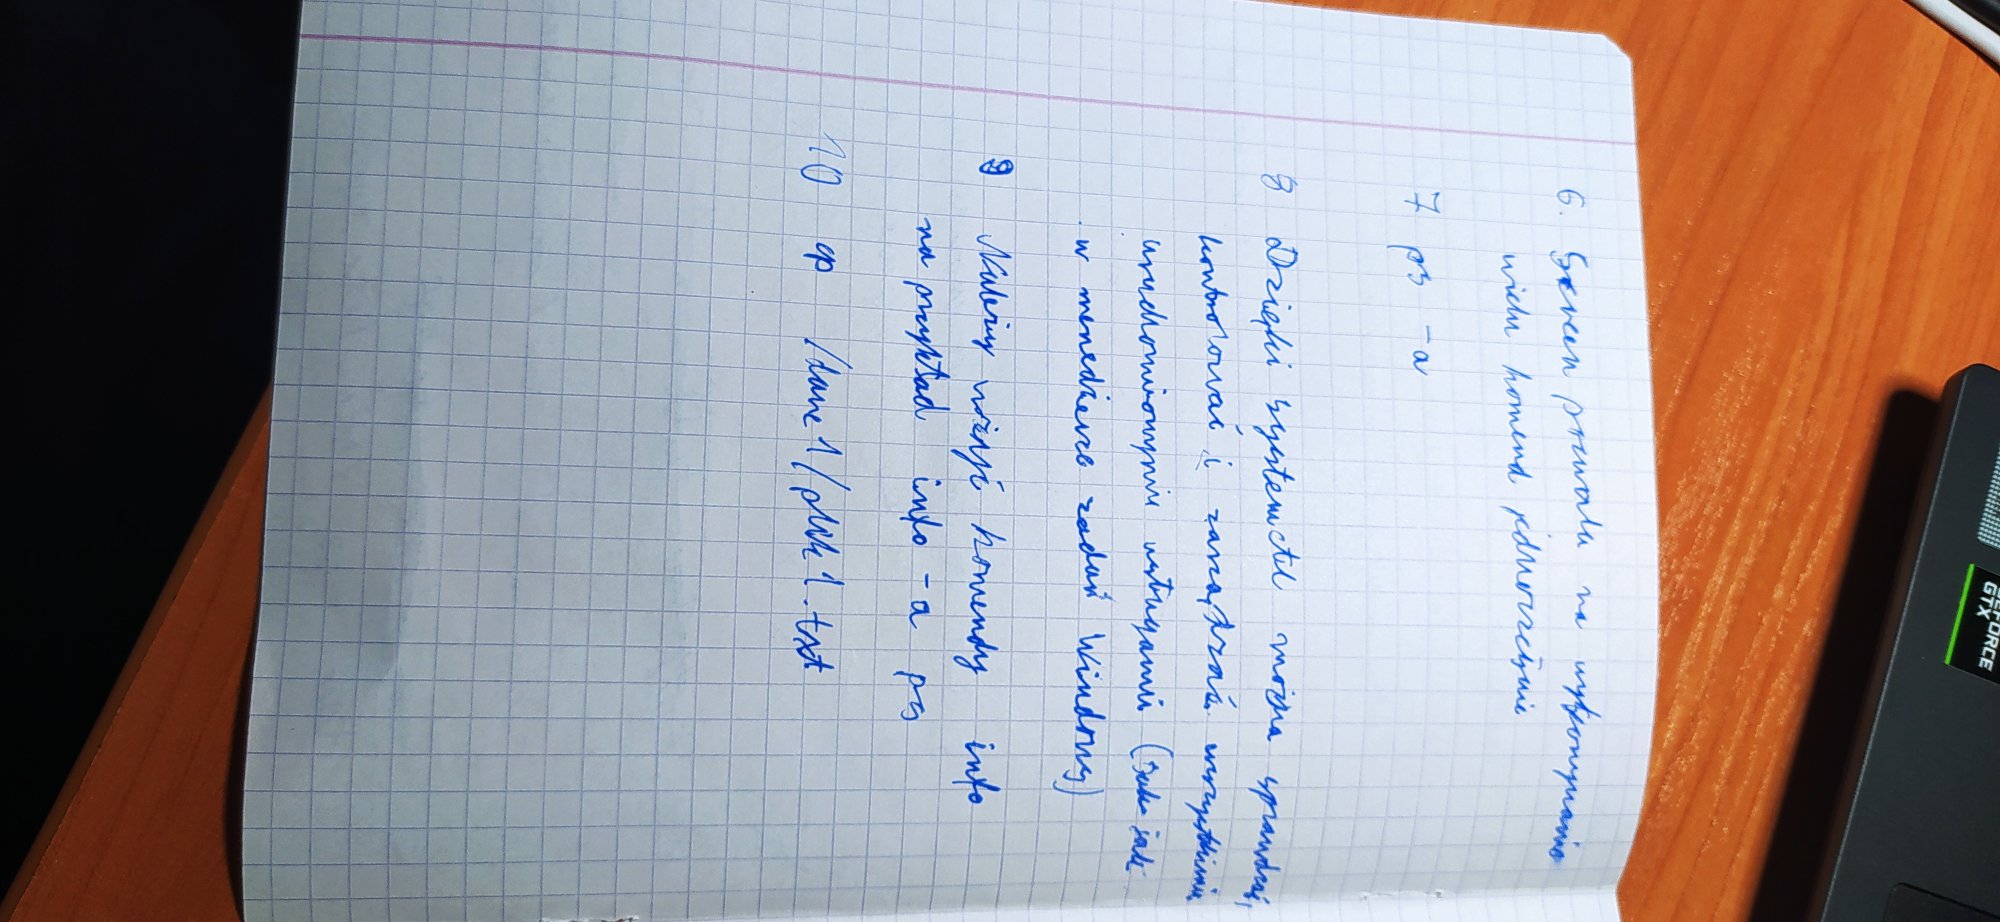 6. Screen pozwala na wykonywanie
wielu komend jednocześnie
7 ps -a
8 Dzięki systemctl można sprawdzać,
kontrolować i zarządzać wszystkimi
uruchomionymi usługami (tak jak
w menedżerze zadań Windowsy)
9 Należy użyć komendy info
na przykład info -a ps
10 cp /dane1/plik1.txt
GEFORCE
GTX